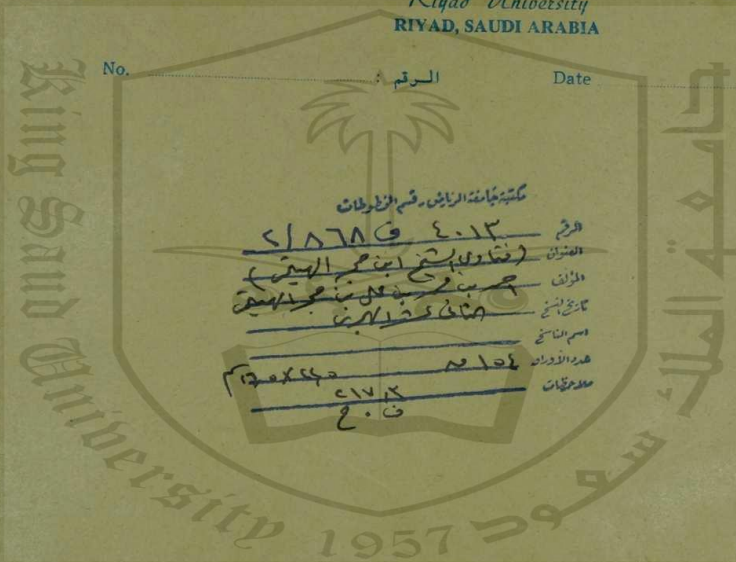 Riyad University
RIYAD, SAUDI ARABIA
No. الرقم : Date
مكتبة جامعة الرياض - قسم المخطوطات
الرقم ٤٠١٣ ف ٨٦٨ / ٢
العنوان (فتاوى الشيخ ابن حجر الهيتمي)
المؤلف احمد بن محمد بن علي بن حجر الهيتمي
تاريخ النسخ الثاني عشر الهجري
اسم الناسخ
عدد الأوراق ١٥٤
ملاحظات ٢١٧٫٣
ف . ح
King Saud University 1957
جامعة الملك سعود